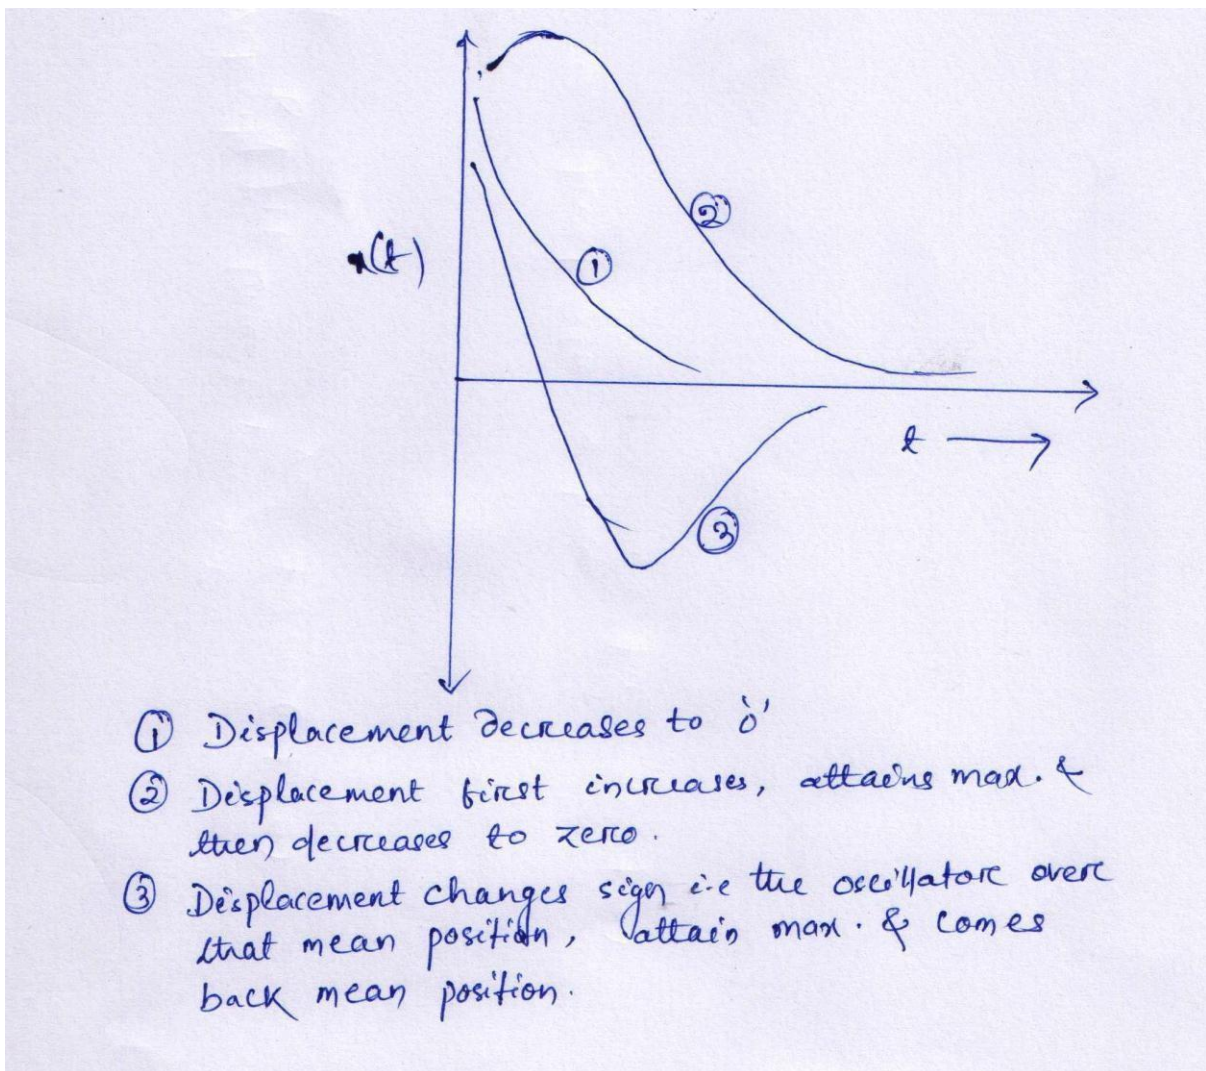 ②
①
x(t)
t
③
① Displacement decreases to '0'
② Displacement first increases, attains max. &
then decreases to zero.
③ Displacement changes sign i.e the oscillator over
that mean position, attain max. & comes
back mean position.